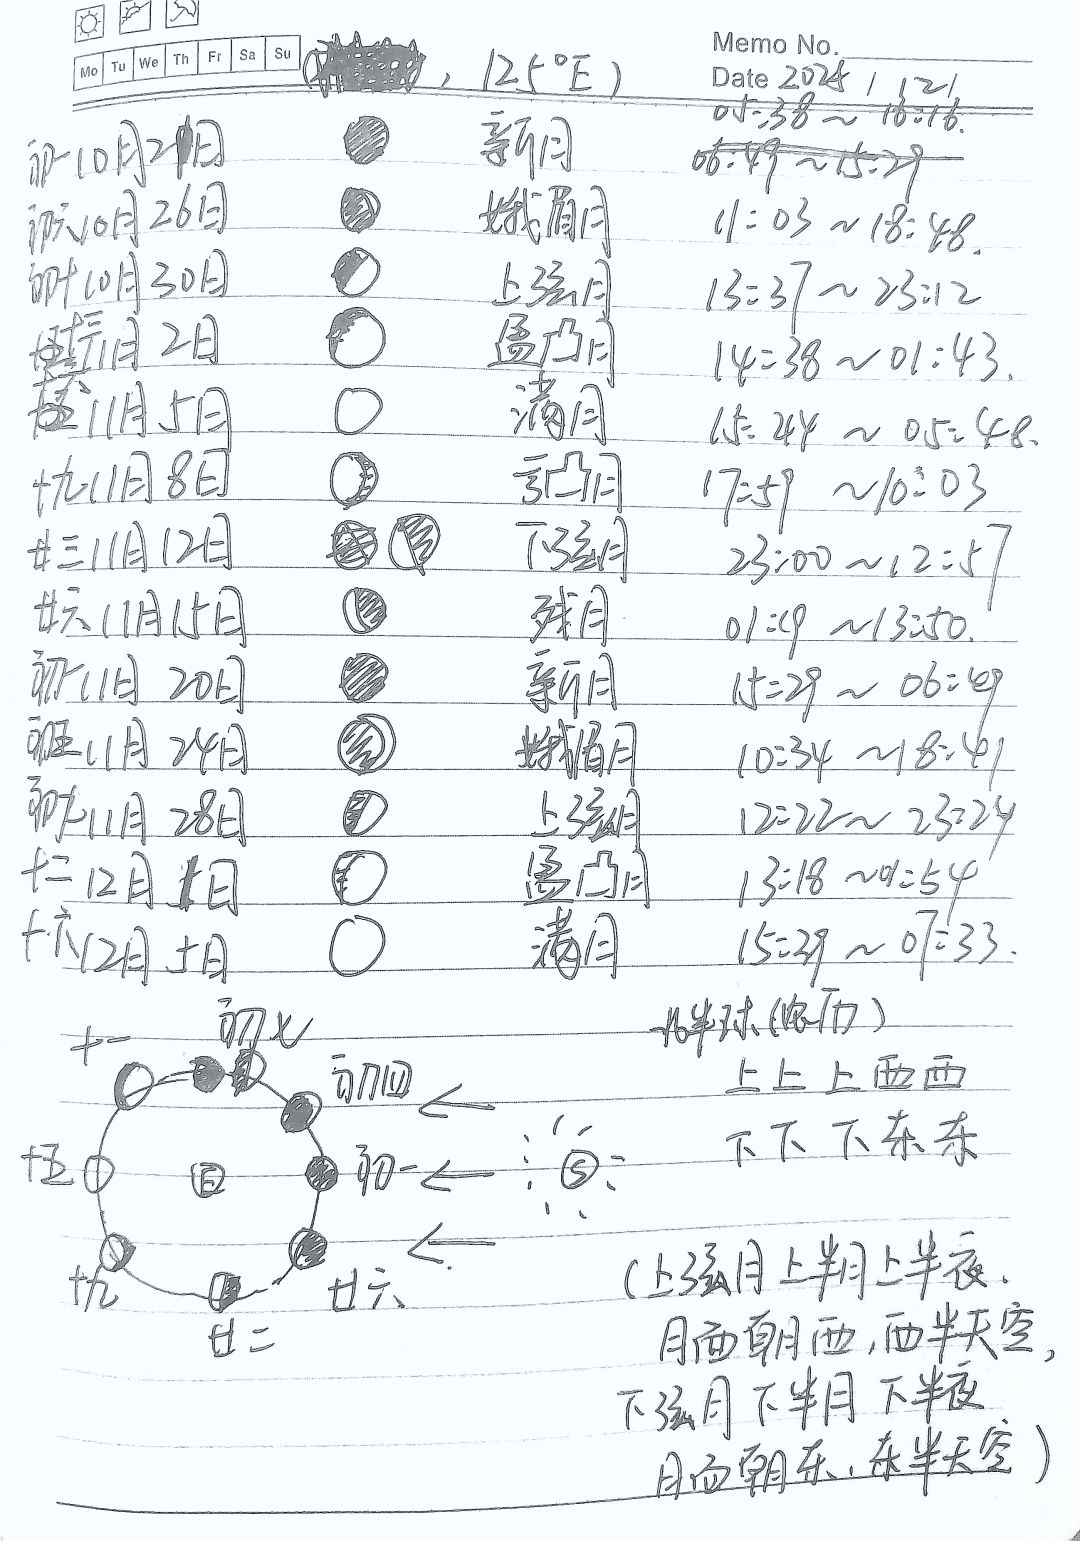 Mo Tu We Th Fr Sa Su
, 125°E)
Memo No.
Date 2025 / 12 /
05:38 ~ 16:16.
初一 10月21日 新月 06:49 ~ 15:29
初六 10月26日 蛾眉月 11:03 ~ 18:48.
初十 10月30日 上弦月 13:37 ~ 23:12
十三 11月2日 盈凸月 14:38 ~ 01:43.
十六 11月5日 满月 15:44 ~ 05:48.
十九 11月8日 亏凸月 17:59 ~ 10:03
廿三 11月12日 下弦月 23:00 ~ 12:57
廿六 11月15日 残月 01:19 ~ 13:50.
初一 11月20日 新月 15:29 ~ 06:49
初五 11月24日 蛾眉月 10:34 ~ 18:41
初九 11月28日 上弦月 12:22 ~ 23:24
十二 12月1日 盈凸月 13:18 ~ 01:54
十六 12月5日 满月 15:29 ~ 07:33.
北半球(农历)
上上上西西
下下下东东
十一
初七
初四
十五
日
初一
S
十九
廿二
廿六
(上弦月上半月上半夜.
月面朝西,西半天空,
下弦月下半月下半夜
月面朝东,东半天空)